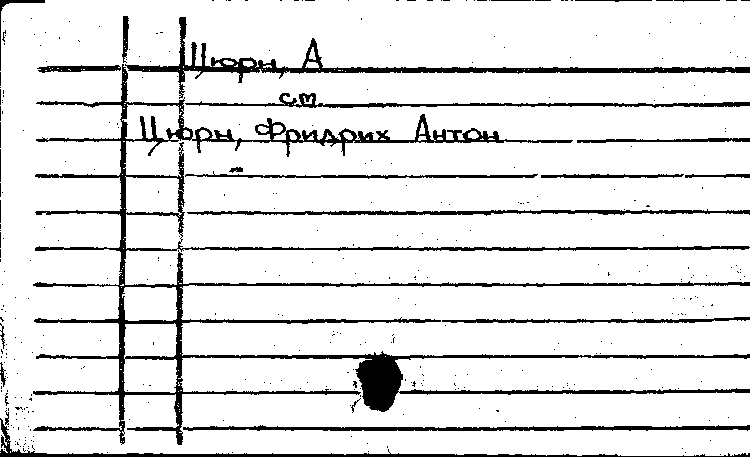 Цюрн, А
см
Цюрн, Фридрих Антон